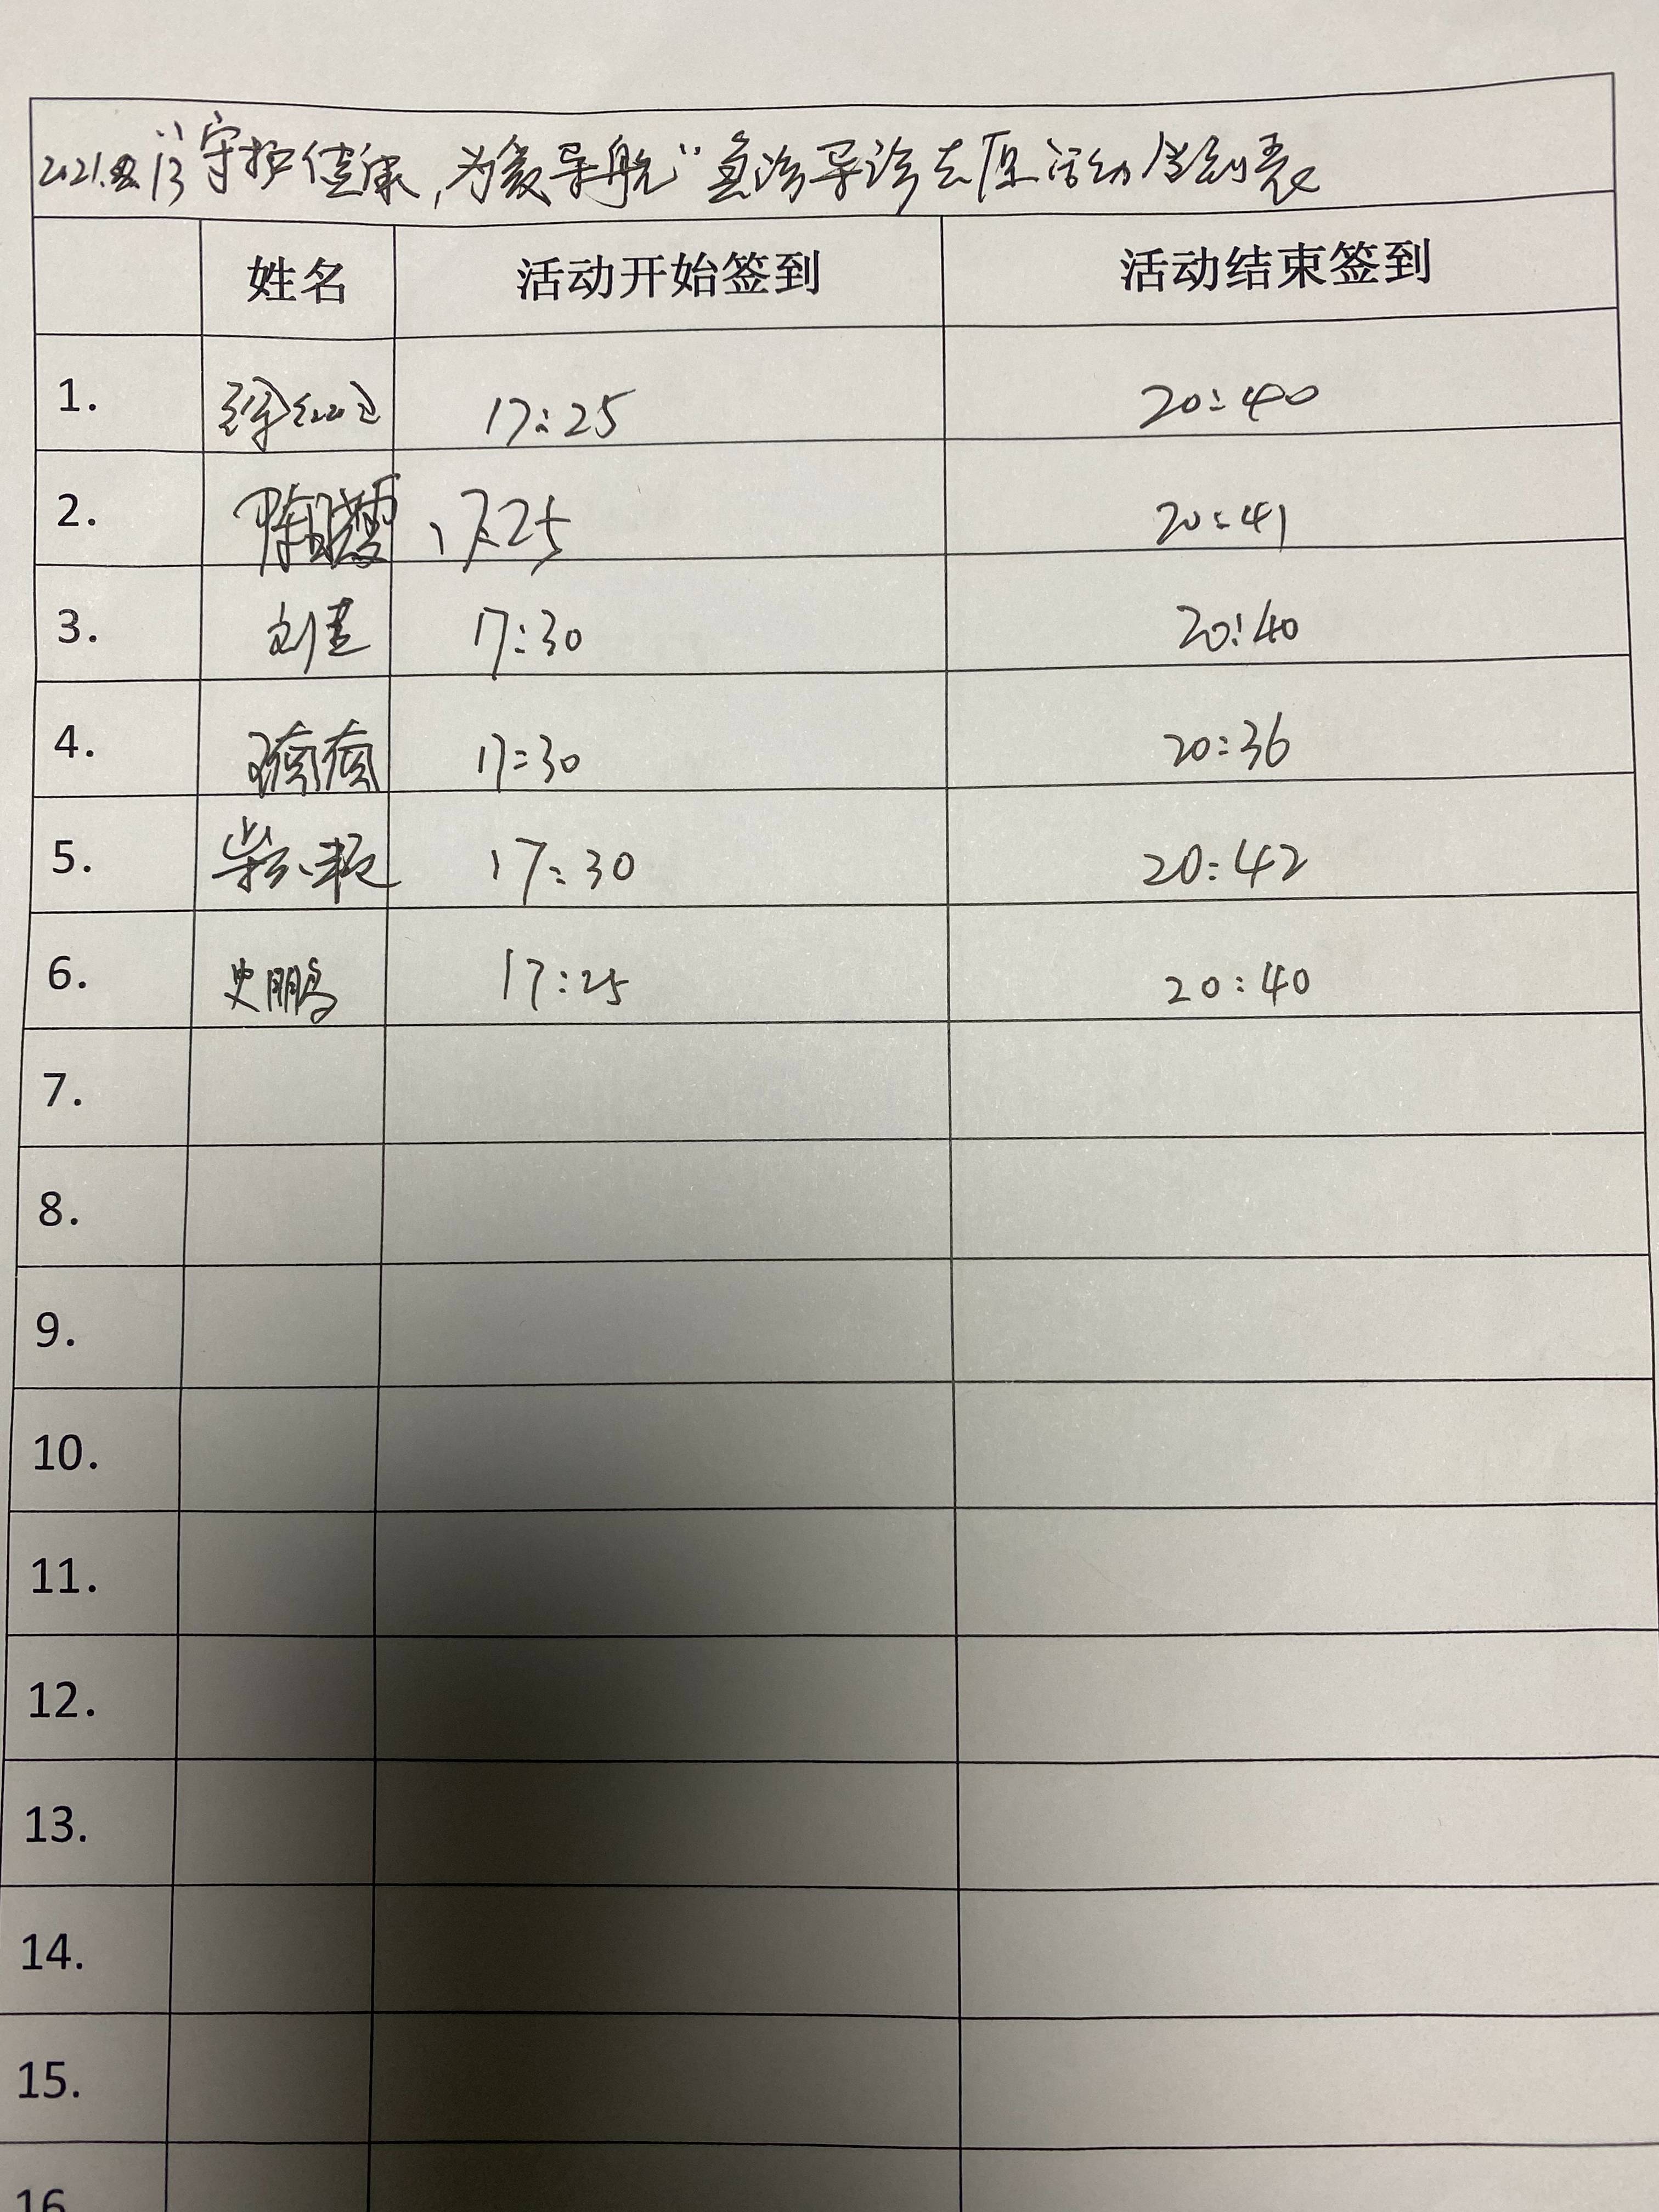 “守护健康,为爱导航”急诊导诊志愿活动签到表
姓名 活动开始签到 活动结束签到
1. 17:25 20:40
2. 17:25 20:41
3. 17:30 20:40
4. 17:30 20:36
5. 17:30 20:42
6. 史鹏 17:25 20:40
7.
8.
9.
10.
11.
12.
13.
14.
15.
16